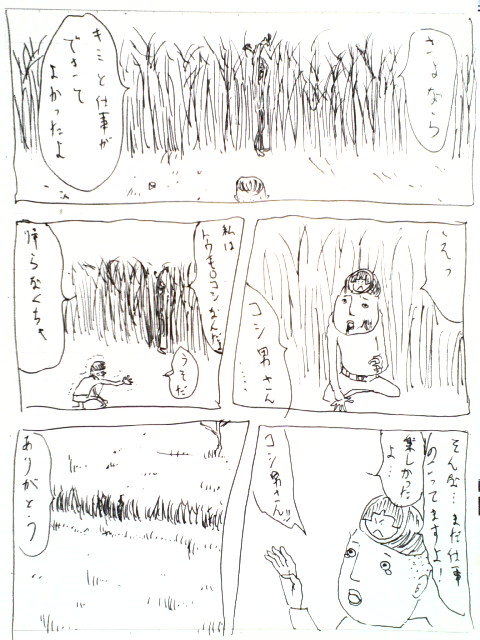 さよなら
キミと仕事が
できて
よかったよ
えっ
コシ男さん
……
私は
トウモロコシなんだよ
うそだ
帰らなくちゃ
そんな…まだ仕事
のこってますよ!
楽しかった
よ…
コシ男さん!!
ありがとう